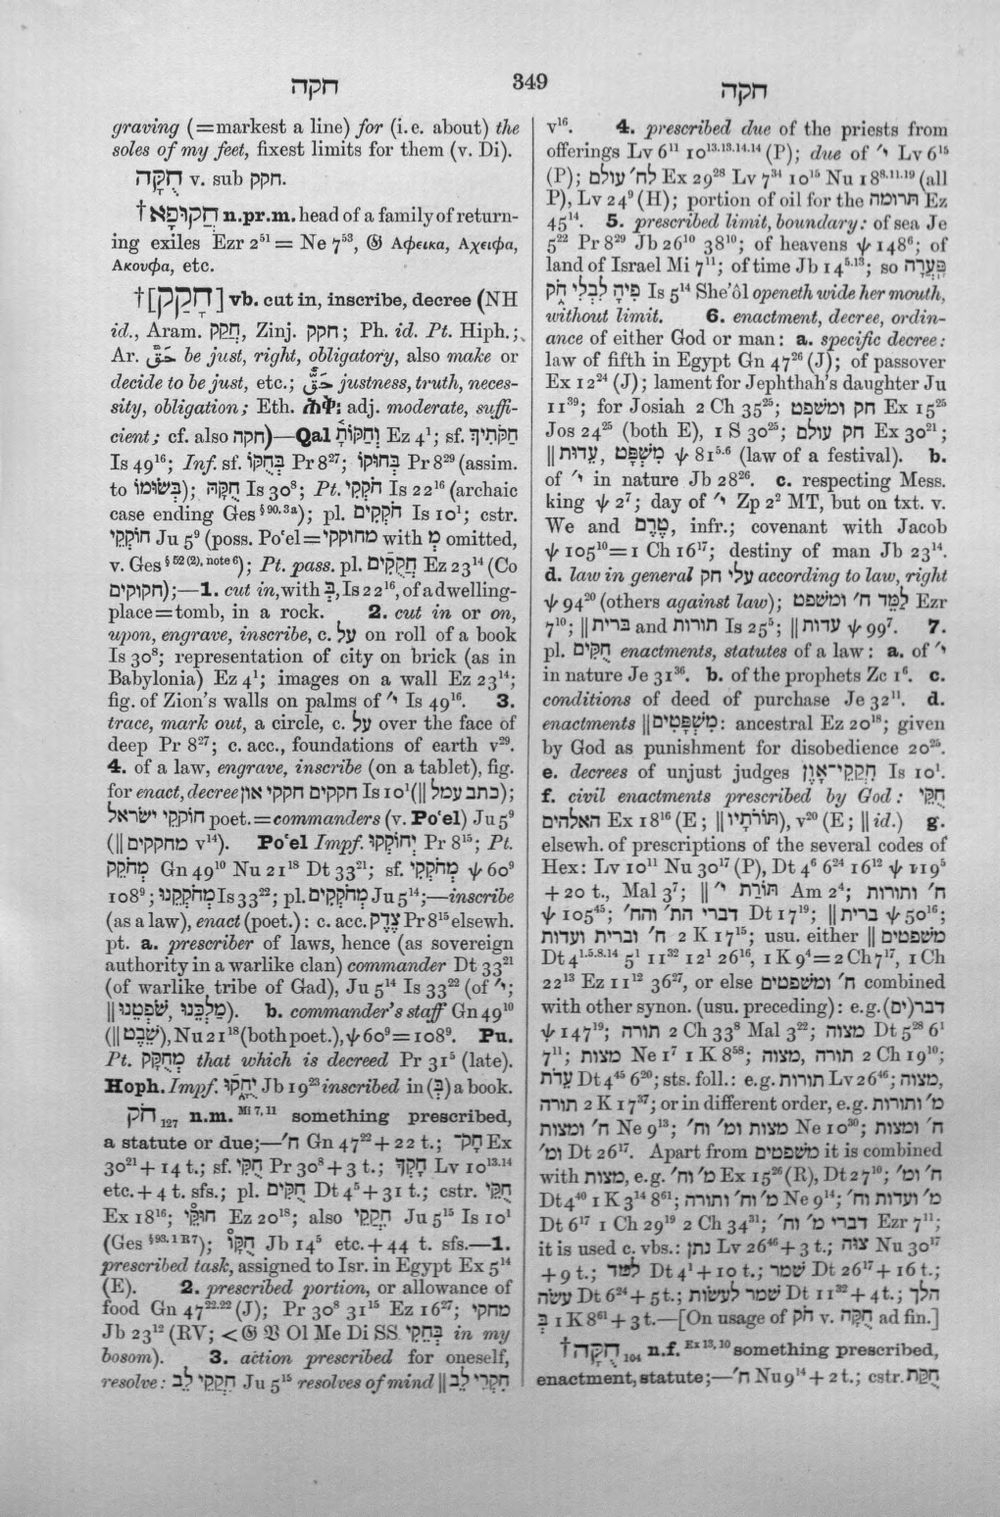 חקה 349 חקה
graving (=markest a line) for (i.e. about) the
soles of my feet, fixest limits for them (v. Di).
חֻקָּה v. sub חקק.
†חֲקוּפָא n.pr.m. head of a family of return-
ing exiles Ezr 2⁵¹ = Ne 7⁵³, 𝔊 Αφεικα, Αχειφα,
Ακουφα, etc.
†[חָקַק] vb. cut in, inscribe, decree (NH
id., Aram. חֲקַק, Zinj. חקק; Ph. id. Pt. Hiph.;
Ar. حَقَّ be just, right, obligatory, also make or
decide to be just, etc.; حَقٌّ justness, truth, neces-
sity, obligation; Eth. adj. moderate, suffi-
cient; cf. also חקה)—Qal וְחַקּוֹתָ Ez 4¹; sf. חַקֹּתִיךְ
Is 49¹⁶; Inf. sf. בְּחֻקוֹ Pr 8²⁷; בְּחוּקוֹ Pr 8²⁹ (assim.
to בְּשׂוּמוֹ); חֻקָּהּ Is 30⁸; Pt. חֹקְקִי Is 22¹⁶ (archaic
case ending Ges § 90. 3a); pl. חֹקְקִים Is 10¹; cstr.
חוֹקְקֵי Ju 5⁹ (poss. Poʿel = מחוקקי with מְ omitted,
v. Ges § 52 (2), note 6); Pt. pass. pl. חֲקֻקִים Ez 23¹⁴ (Co
חקוקים);—1. cut in, with בְּ, Is 22¹⁶, of a dwelling-
place = tomb, in a rock. 2. cut in or on,
upon, engrave, inscribe, c. עַל on roll of a book
Is 30⁸; representation of city on brick (as in
Babylonia) Ez 4¹; images on a wall Ez 23¹⁴;
fig. of Zion's walls on palms of י׳ Is 49¹⁶. 3.
trace, mark out, a circle, c. עַל over the face of
deep Pr 8²⁷; c. acc., foundations of earth v²⁹.
4. of a law, engrave, inscribe (on a tablet), fig.
for enact, decree חקקים חקקי און Is 10¹ (|| כתב עמל);
חוקקי ישראל poet. = commanders (v. Poʿel) Ju 5⁹
(|| מחקקים v¹⁴). Poʿel Impf. יְחוֹקְקוּ Pr 8¹⁵; Pt.
מְחֹקֵק Gn 49¹⁰ Nu 21¹⁸ Dt 33²¹; sf. מְחֹקְקִי ψ 60⁹
108⁹; מְחֹקְקֵנוּ Is 33²²; pl. מְחֹקְקִים Ju 5¹⁴;—inscribe
(as a law), enact (poet.): c. acc. צֶדֶק Pr 8¹⁵ elsewh.
pt. a. prescriber of laws, hence (as sovereign
authority in a warlike clan) commander Dt 33²¹
(of warlike tribe of Gad), Ju 5¹⁴ Is 33²² (of י׳;
|| מַלְכֵּנוּ, שֹׁפְטֵנוּ). b. commander's staff Gn 49¹⁰
(|| שֵׁבֶט), Nu 21¹⁸ (both poet.), ψ 60⁹ = 108⁹. Pu.
Pt. מְחֻקָּק that which is decreed Pr 31⁵ (late).
Hoph. Impf. יֻחָקוּ Jb 19²³ inscribed in (בְּ) a book.
חֹק ₁₂₇ n.m. Mi 7, 11 something prescribed,
a statute or due;—ח׳ Gn 47²² + 22 t.; חָק־ Ex
30²¹ + 14 t.; sf. חֻקִּי Pr 30⁸ + 3 t.; חָקְךָ Lv 10¹³·¹⁴
etc. + 4 t. sfs.; pl. חֻקִּים Dt 4⁵ + 31 t.; cstr. חֻקֵּי
Ex 18¹⁶; חוּקֵּי Ez 20¹⁸; also חִקְקֵי Ju 5¹⁵ Is 10¹
(Ges § 93. 1 R 7); חֻקָּו Jb 14⁵ etc. + 44 t. sfs.—1.
prescribed task, assigned to Isr. in Egypt Ex 5¹⁴
(E). 2. prescribed portion, or allowance of
food Gn 47²²·²² (J); Pr 30⁸ 31¹⁵ Ez 16²⁷; מחקי
Jb 23¹² (RV; < 𝔊 𝔙 Ol Me Di SS בְּחֵקִי in my
bosom). 3. action prescribed for oneself,
resolve: חִקְקֵי לֵב Ju 5¹⁵ resolves of mind || חִקְרֵי לֵב
v¹⁶. 4. prescribed due of the priests from
offerings Lv 6¹¹ 10¹³·¹³·¹⁴·¹⁴ (P); due of י׳ Lv 6¹⁵
(P); לח׳ עולם Ex 29²⁸ Lv 7³⁴ 10¹⁵ Nu 18⁸·¹¹·¹⁹ (all
P), Lv 24⁹ (H); portion of oil for the תרומה Ez
45¹⁴. 5. prescribed limit, boundary: of sea Je
5²² Pr 8²⁹ Jb 26¹⁰ 38¹⁰; of heavens ψ 148⁶; of
land of Israel Mi 7¹¹; of time Jb 14⁵·¹³; so פָּעֲרָה
פִיהָ לִבְלִי חֹק Is 5¹⁴ She'ôl openeth wide her mouth,
without limit. 6. enactment, decree, ordin-
ance of either God or man: a. specific decree:
law of fifth in Egypt Gn 47²⁶ (J); of passover
Ex 12²⁴ (J); lament for Jephthah's daughter Ju
11³⁹; for Josiah 2 Ch 35²⁵; חק ומשפט Ex 15²⁵
Jos 24²⁵ (both E), 1 S 30²⁵; חק עולם Ex 30²¹;
|| מִשְׁפָּט, עֵדוּת ψ 81⁵·⁶ (law of a festival). b.
of י׳ in nature Jb 28²⁶. c. respecting Mess.
king ψ 2⁷; day of י׳ Zp 2² MT, but on txt. v.
We and טֶרֶם, infr.; covenant with Jacob
ψ 105¹⁰ = 1 Ch 16¹⁷; destiny of man Jb 23¹⁴.
d. law in general עלי חק according to law, right
ψ 94²⁰ (others against law); לִמֵּד ח׳ ומשפט Ezr
7¹⁰; || ברית and תורות Is 25⁵; || עדות ψ 99⁷. 7.
pl. חֻקִּים enactments, statutes of a law: a. of י׳
in nature Je 31³⁶. b. of the prophets Zc 1⁶. c.
conditions of deed of purchase Je 32¹¹. d.
enactments || מִשְׁפָּטִים: ancestral Ez 20¹⁸; given
by God as punishment for disobedience 20²⁵.
e. decrees of unjust judges חִקְקֵי־אָוֶן Is 10¹.
f. civil enactments prescribed by God: חֻקֵּי
האלהים Ex 18¹⁶ (E; || תּוֹרֹתָיו), v²⁰ (E; || id.) g.
elsewh. of prescriptions of the several codes of
Hex: Lv 10¹¹ Nu 30¹⁷ (P), Dt 4⁶ 6²⁴ 16¹² ψ 119⁵
+ 20 t., Mal 3⁷; || תּוֹרַת י׳ Am 2⁴; ח׳ ותורות
ψ 105⁴⁵; דברי הת׳ והח׳ Dt 17¹⁹; || ברית ψ 50¹⁶;
ח׳ וברית ועדות 2 K 17¹⁵; usu. either || משפטים
Dt 4¹·⁵·⁸·¹⁴ 5¹ 11³² 12¹ 26¹⁶, 1 K 9⁴ = 2 Ch 7¹⁷, 1 Ch
22¹³ Ez 11¹² 36²⁷, or else ח׳ ומשפטים combined
with other synon. (usu. preceding): e.g. דבר(ים)
ψ 147¹⁹; תורה 2 Ch 33⁸ Mal 3²²; מצוה Dt 5²⁸ 6¹
7¹¹; מצות Ne 1⁷ 1 K 8⁵⁸; תורה, מצוה 2 Ch 19¹⁰;
עֵדֹת Dt 4⁴⁵ 6²⁰; sts. foll.: e.g. תורות Lv 26⁴⁶; מצוה,
תורה 2 K 17³⁷; or in different order, e.g. מ׳ ותורות
ומצות ח׳ Ne 9¹³; מצות ומ׳ וח׳ Ne 10³⁰; ח׳ ומצות
ומ׳ Dt 26¹⁷. Apart from משפטים it is combined
with מצות, e.g. מ׳ וח׳ Ex 15²⁶ (R), Dt 27¹⁰; ח׳ ומ׳
Dt 4⁴⁰ 1 K 3¹⁴ 8⁶¹; מ׳ וח׳ ותורה Ne 9¹⁴; מ׳ ועדות וח׳
Dt 6¹⁷ 1 Ch 29¹⁹ 2 Ch 34³¹; דברי מ׳ וח׳ Ezr 7¹¹;
it is used c. vbs.: נתן Lv 26⁴⁶ + 3 t.; צוה Nu 30¹⁷
+ 9 t.; למד Dt 4¹ + 10 t.; שמר Dt 26¹⁷ + 16 t.;
עשה Dt 6²⁴ + 5 t.; שמר לעשות Dt 11³² + 4 t.; הלך
בְּ 1 K 8⁶¹ + 3 t.—[On usage of חֹק v. חֻקָּה ad fin.]
†חֻקָּה ₁₀₄ n.f. Ex 13, 10 something prescribed,
enactment, statute;—ח׳ Nu 9¹⁴ + 2 t.; cstr. חֻקַּת